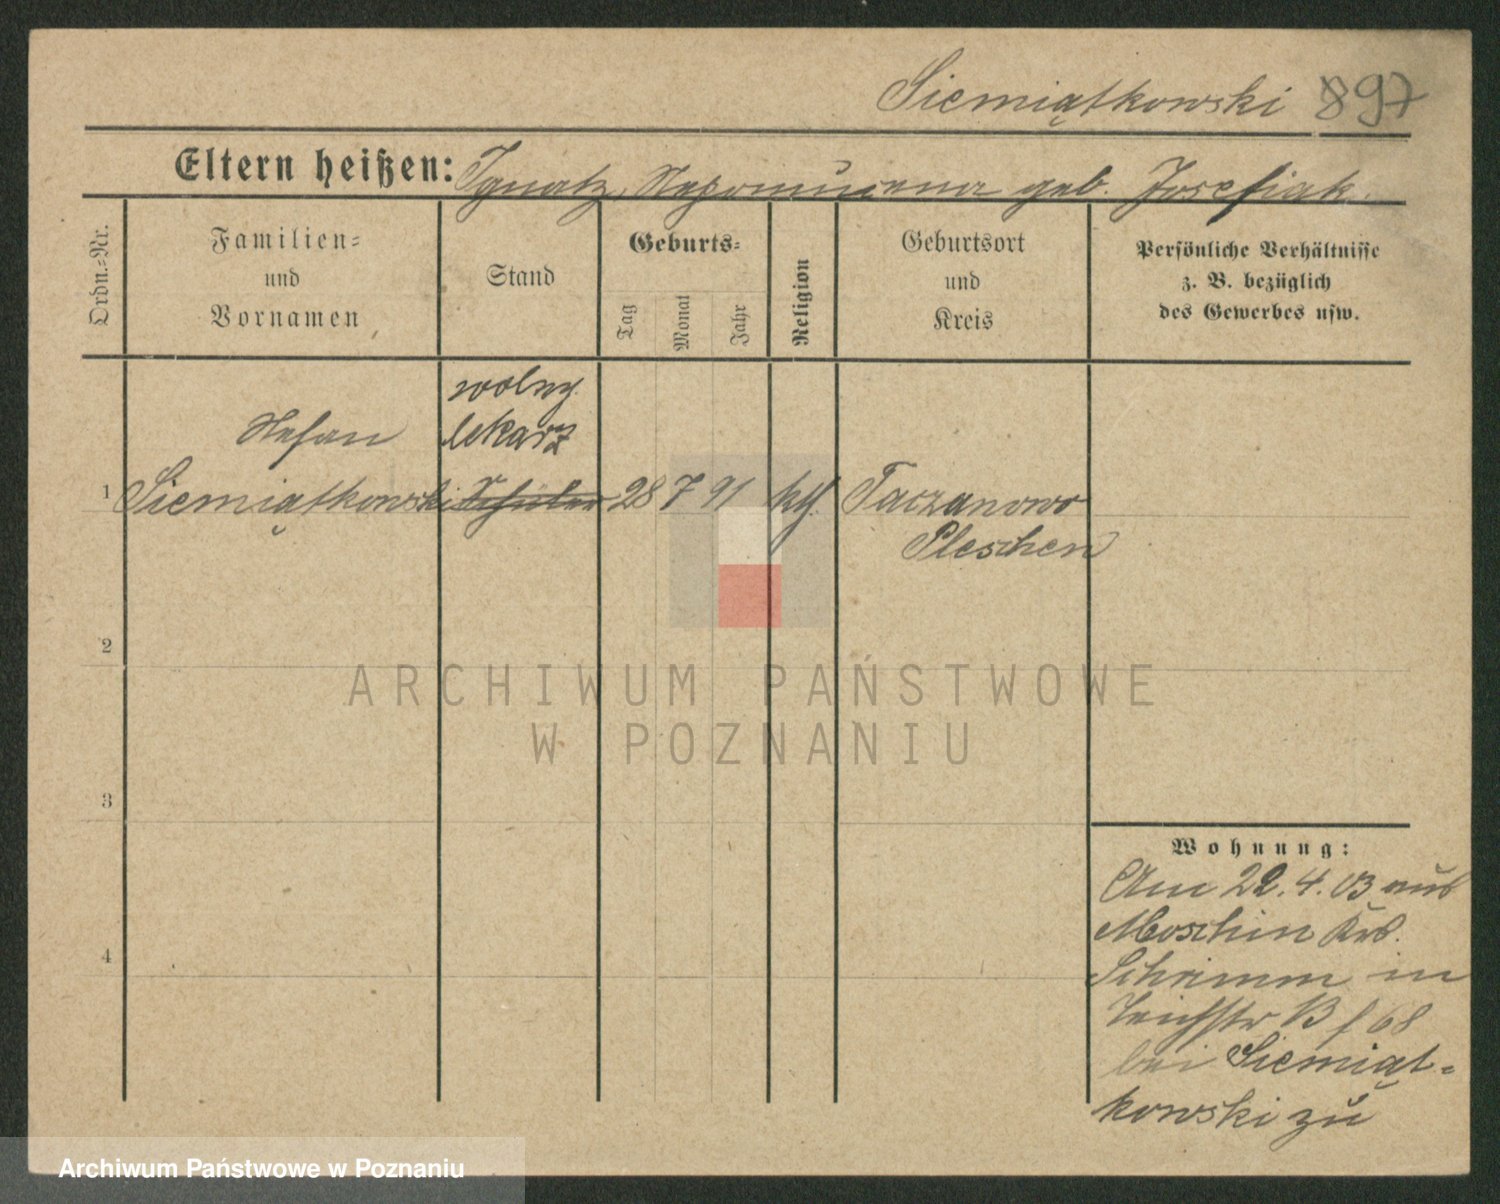 Siemiątkowski 897
Eltern heißen: Ignatz, Nepomucena geb. Josefiak.
Ordn.-Nr.
Familien-
und
Vornamen
Stand
Geburts-
Tag
Monat
Jahr
Religion
Geburtsort
und
Kreis
Persönliche Verhältnisse
z. B. bezüglich
des Gewerbes usw.
wolny.
Stefan lekarz
1 Siemiątkowski Schüler 28 7 91 kth. Taczanowo
Pleschen
2
ARCHIWUM PAŃSTWOWE
W POZNANIU
3
Wohnung:
Am 22.4.03 aus
Moschin Krs.
4
Schrimm in
Teichstr 68
bei Siemiąt-
kowski zu
Archiwum Państwowe w Poznaniu